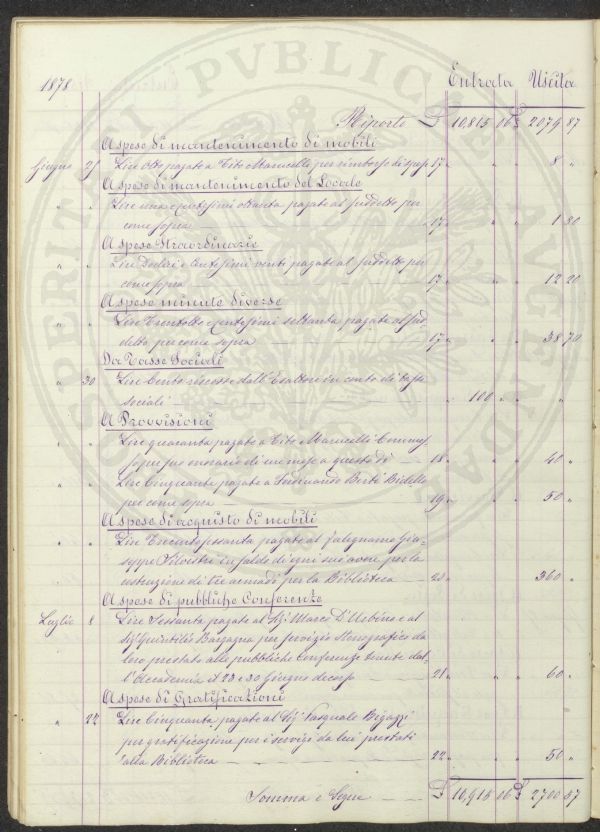 1878
Entrata Uscita
Riporto £ 10,815 06 £ 2079 87
A spese di mantenimento di mobili
Giugno 25 Lire otto pagate a Tito Marucelli per rimborso di spese 17 " " " 8 "
A spese di mantenimento del Locale
" " Lire una e centesimi ottanta pagate al suddetto per
come sopra 17 " " " 1 80
A spese straordinarie
" " Lire Dodici e Centesimi venti pagate al suddetto per
come sopra 17 " " " 12 20
A spese minute diverse
" " Lire Trentotto e centesimi settanta pagate al sud-
detto per come sopra 17 " " " 38 70
Da Tasse Sociali
" 30 Lire Cento riscosse dall'Esattore in conto di tasse
sociali " 100 " " "
A Provvisioni
" " Lire quaranta pagate a Tito Marucelli Commes-
so per suo onorario di un mese a questo dì 18 " " " 40 "
" " Lire Cinquanta pagate a Ferdinando Berti Bidello
per come sopra 19 " " " 50 "
A spese di acquisto di mobili
" " Lire Trecentosessanta pagate al falegname Giu-
seppe Silvestri in saldo di ogni suo avere per la
costruzione di tre armadi per la Biblioteca 20 " " " 360 "
A spese di pubbliche Conferenze
Luglio 8 Lire Sessanta pagate al Sig: Marco D'Urbino e al
Sig: Quintilio Bargagna per servizio stenografico da
loro prestato alle pubbliche conferenze tenute dal-
l'Accademia il 23 e 30 Giugno decorso 21 " " " 60 "
A spese di Gratificazioni
" 22 Lire Cinquanta pagate al Sig: Pasquale Bigazzi
per gratificazione per i servizi da lui prestati
alla Biblioteca 22 " " " 50 "
Somma e Segue £ 10,915 06 £ 2700 57
PROSPERITATI PVBLICAE AVGENDAE